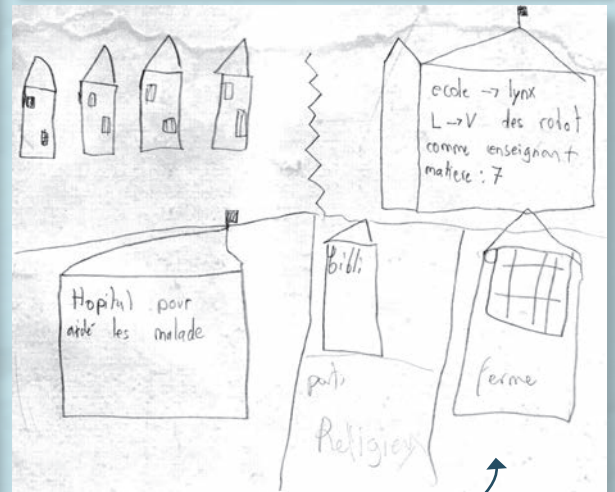 ecole → lynx
L → V des robot
comme enseignant
matiere : 7
Hopital pour
aidé les malade
bibli
parti
Religieux
ferme